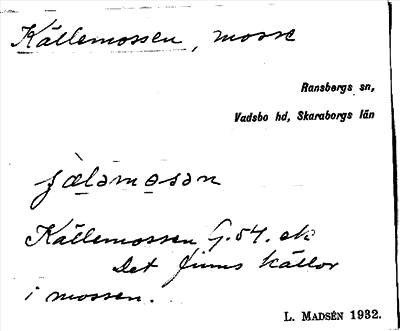 Källemossen, mosse
Ransbergs sn,
Vadsbo hd, Skaraborgs län
Källemossen G. 54. ek
Det finns källor
i mossen.
L. MADSÉN 1932.